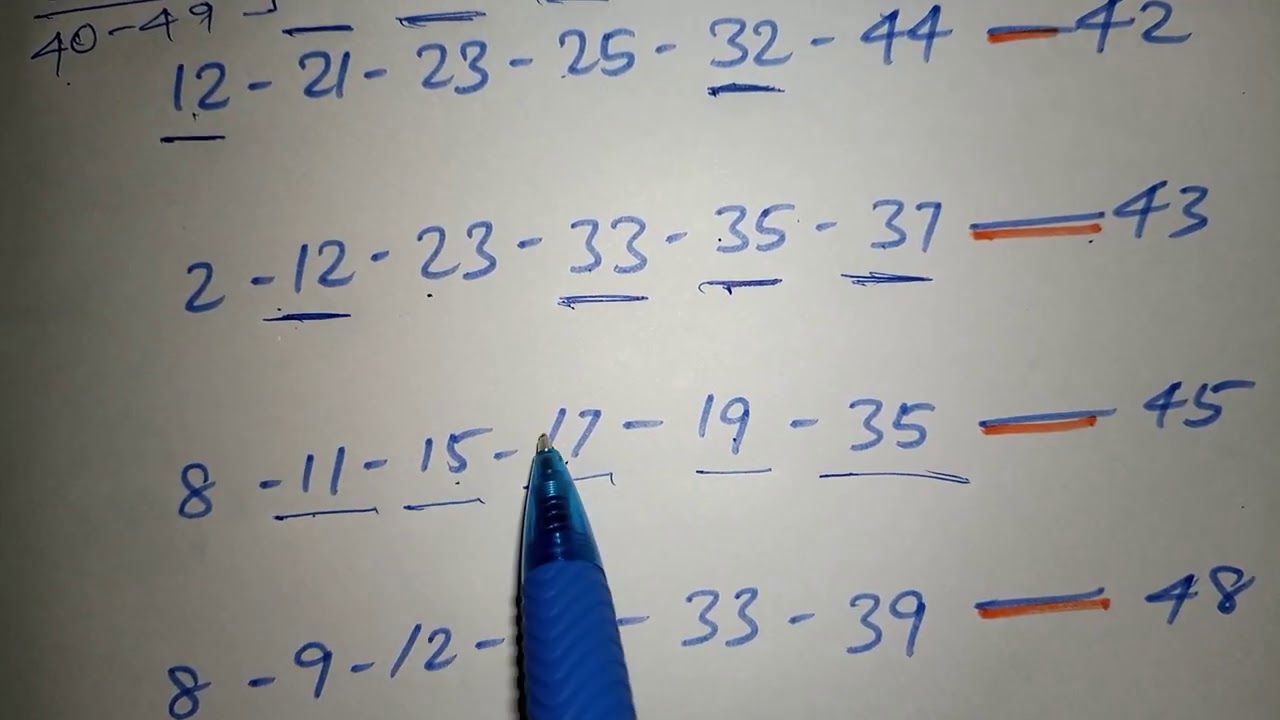 40-49
12 - 21 - 23 - 25 - 32 - 44 — 42
2 - 12 - 23 - 33 - 35 - 37 — 43
8 - 11 - 15 - 17 - 19 - 35 — 45
8 - 9 - 12 - - 33 - 39 — 48